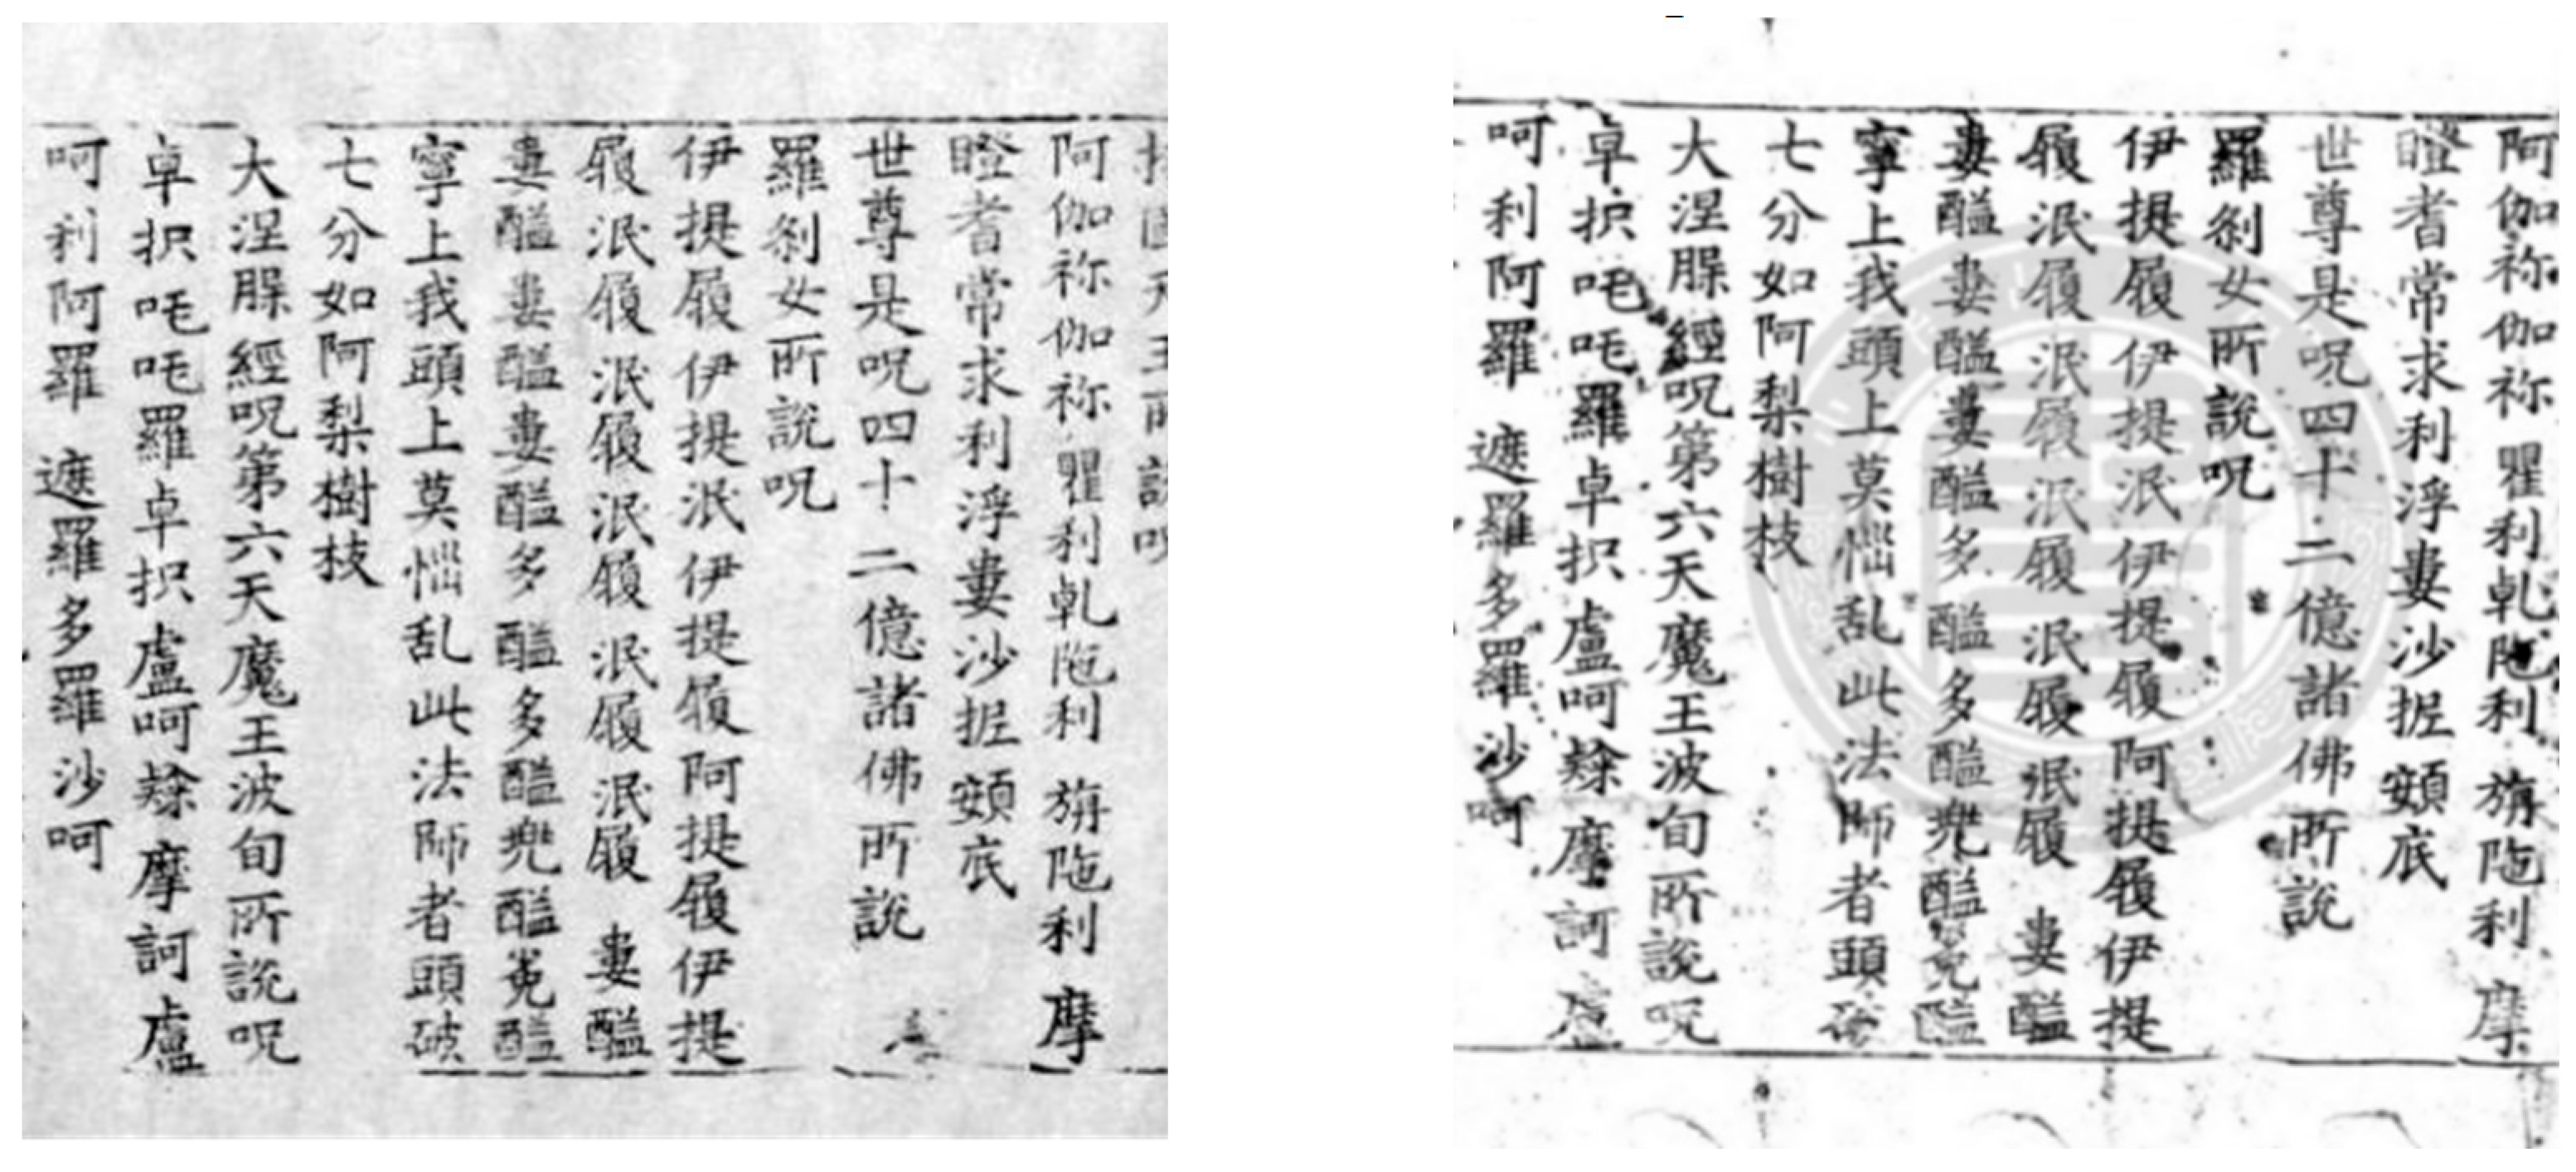 阿伽祢伽祢瞿利乾陁利旃陁利摩
瞪耆常求利浮婁沙抳頞底
世尊是呪四十二億諸佛所說
羅剎女所說呪
伊提履伊提泯伊提履阿提履伊提
履泯履泯履泯履泯履泯履婁醯
婁醯婁醯婁醯多醯多醯兜醯㝹醯
寧上我頭上莫惱乱此法師者頭破
七分如阿梨樹枝
大涅槃經呪第六天魔王波旬所說呪
卓抧吒吒羅卓抧盧呵隸摩訶盧
呵利阿羅遮羅多羅沙呵
阿伽祢伽祢瞿利乾陁利旃陁利摩
瞪耆常求利浮婁沙抳頞底
世尊是呪四十二億諸佛所說
羅剎女所說呪
伊提履伊提泯伊提履阿提履伊提
履泯履泯履泯履泯履泯履婁醯
婁醯婁醯婁醯多醯多醯兜醯㝹醯
寧上我頭上莫惱乱此法師者頭破
七分如阿梨樹枝
大涅槃經呪第六天魔王波旬所說呪
卓抧吒吒羅卓抧盧呵隸摩訶盧
呵利阿羅遮羅多羅沙呵